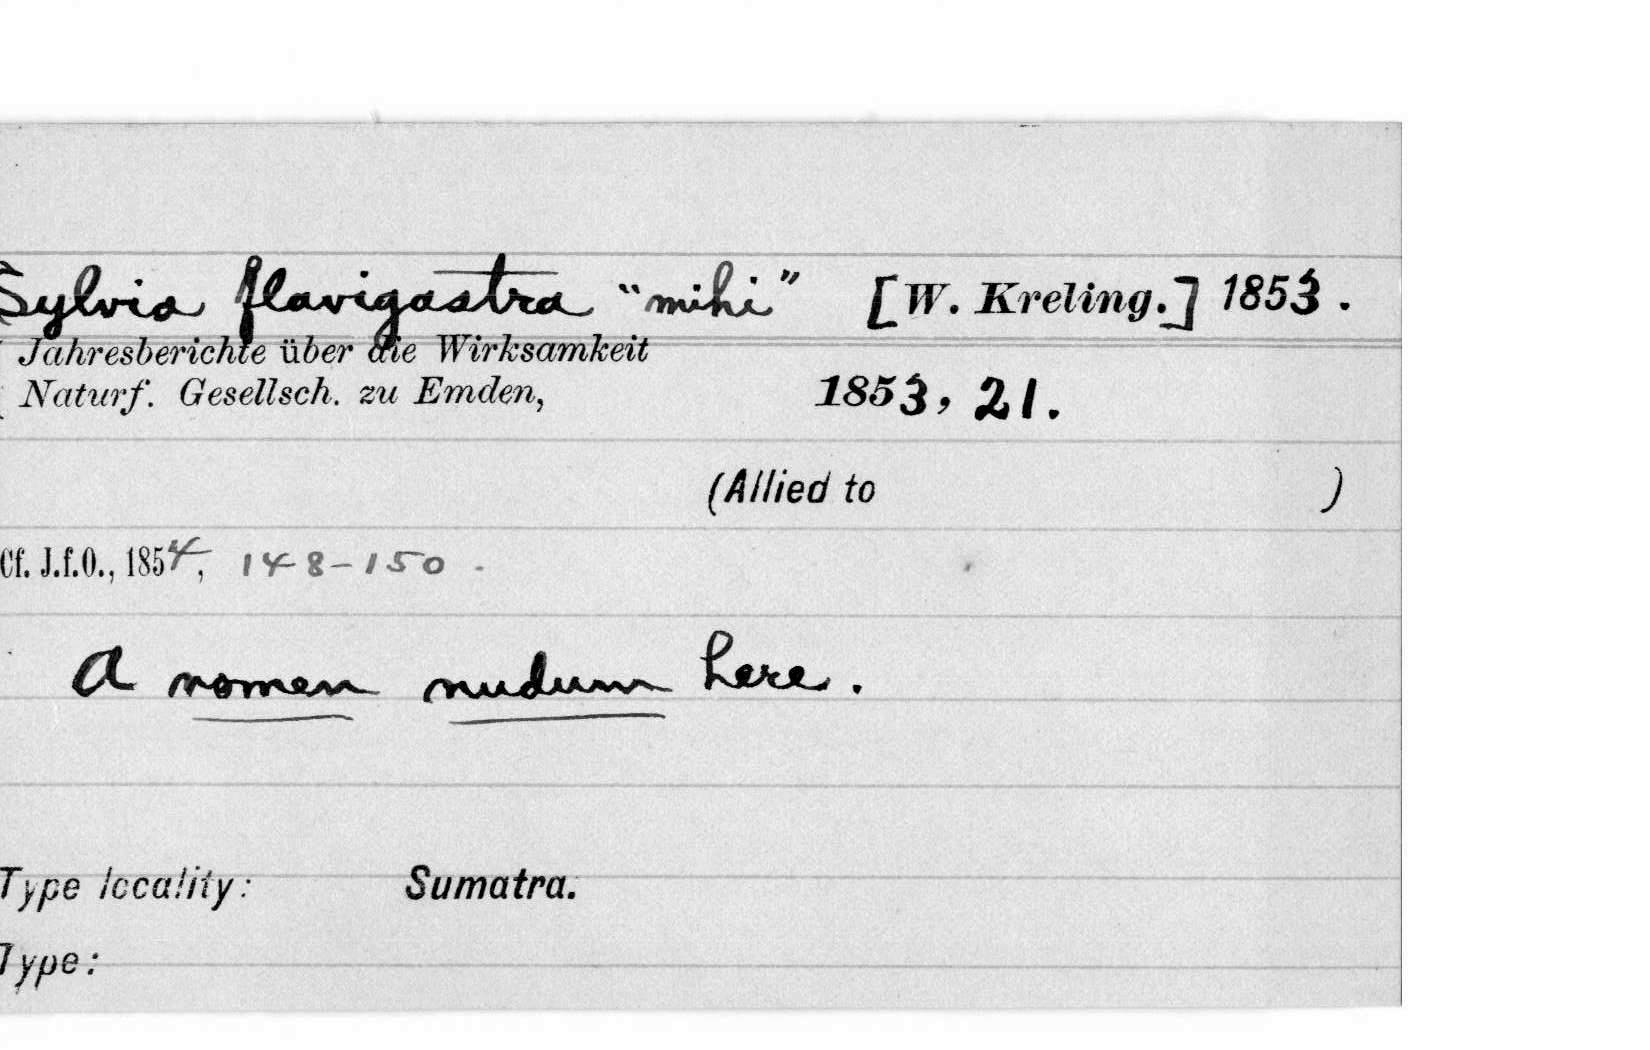 Sylvia flavigastra “mihi” [W. Kreling.] 1853.
Jahresberichte über die Wirksamkeit
Naturf. Gesellsch. zu Emden, 1853, 21.
(Allied to )
Cf. J.f.O., 1854, 148-150.
A nomen nudum here.
Type locality: Sumatra.
Type: